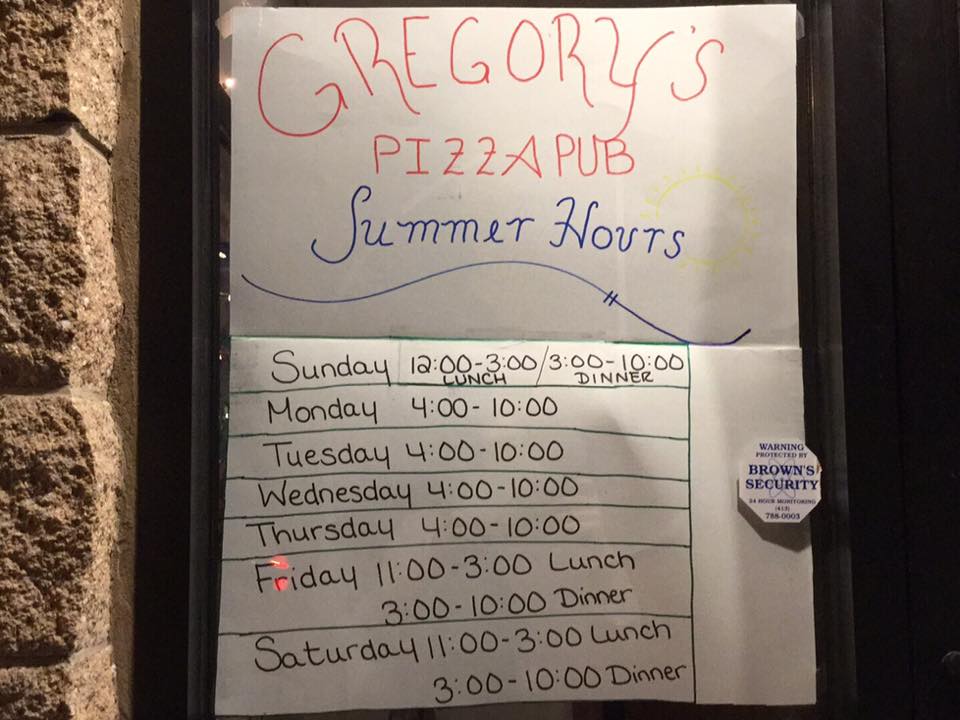 GREGORY'S
PIZZA PUB
Summer Hours
Sunday 12:00-3:00/3:00-10:00
LUNCH DINNER
Monday 4:00-10:00
Tuesday 4:00-10:00
Wednesday 4:00-10:00
Thursday 4:00-10:00
Friday 11:00-3:00 Lunch
3:00-10:00 Dinner
Saturday 11:00-3:00 Lunch
3:00-10:00 Dinner
WARNING
PROTECTED BY
BROWN'S
SECURITY
24 HOUR MONITORING
(413)
788-0003